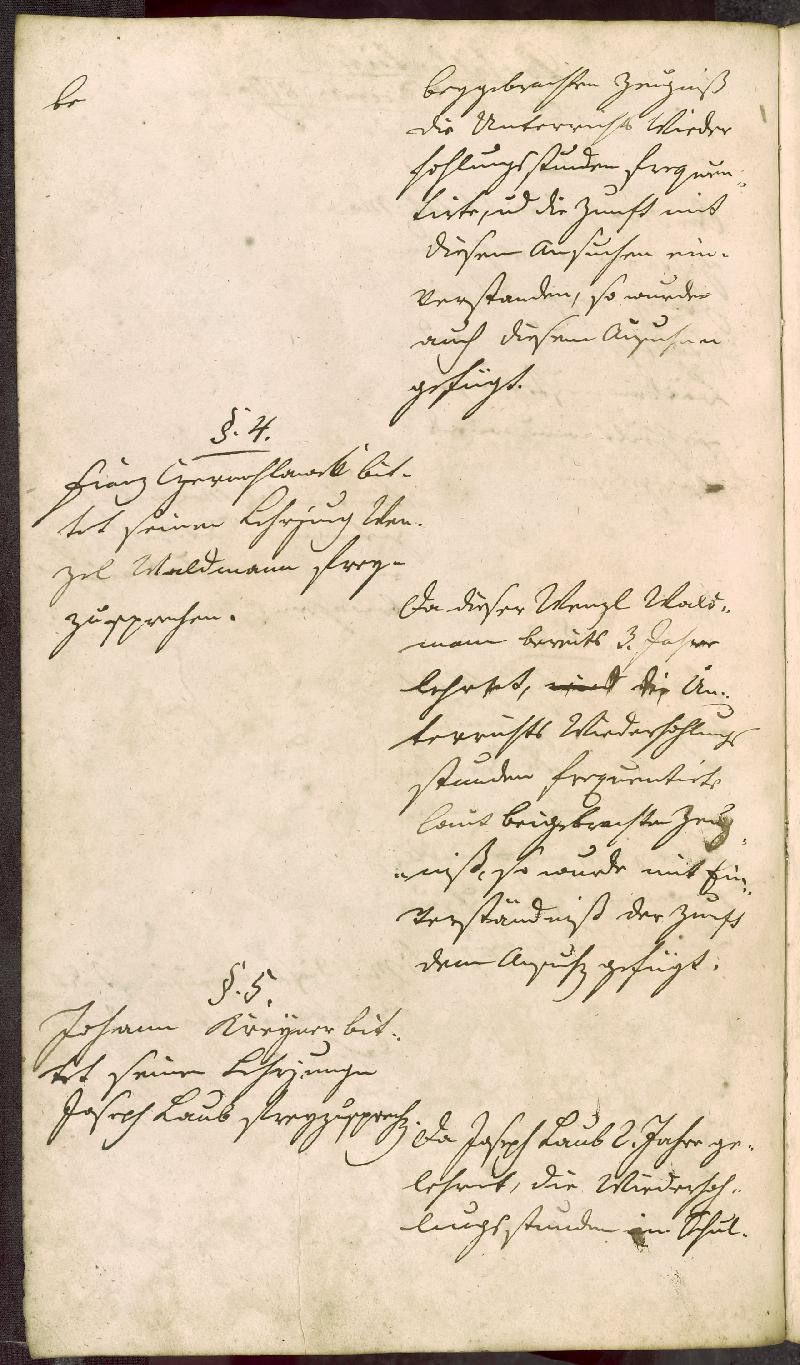 be
beygebrachten Zeugniß
die Unterrichts Wieder
hohlungsstunden frequen-
tirte, ud die Zunft mit
diesem Ansuchen ein-
verstanden, so wurde
auch diesem Ansuchen
gefügt.
§. 4.
Franz bit-
tet seinen Lehrjung Wen-
zel Waldmann frey-
zusprechen.
Da dieser Wenzl Wald-
mann bereits 3. Jahre
lehrnt, und die Un-
terrichts Wiederhohlungs
stunden frequentirte
laut beigebrachten Zeug-
niß, so wurde mit Ein-
verständniß der Zunft
dem Ansuchen gefügt.
§. 5.
Johann bit-
tet seinen Lehrjunge
Joseph Laub freyzusprech.
Da Joseph Laub 2. Jahre ge-
lehrnt, die Wiederhoh-
lungsstunden in Schul-